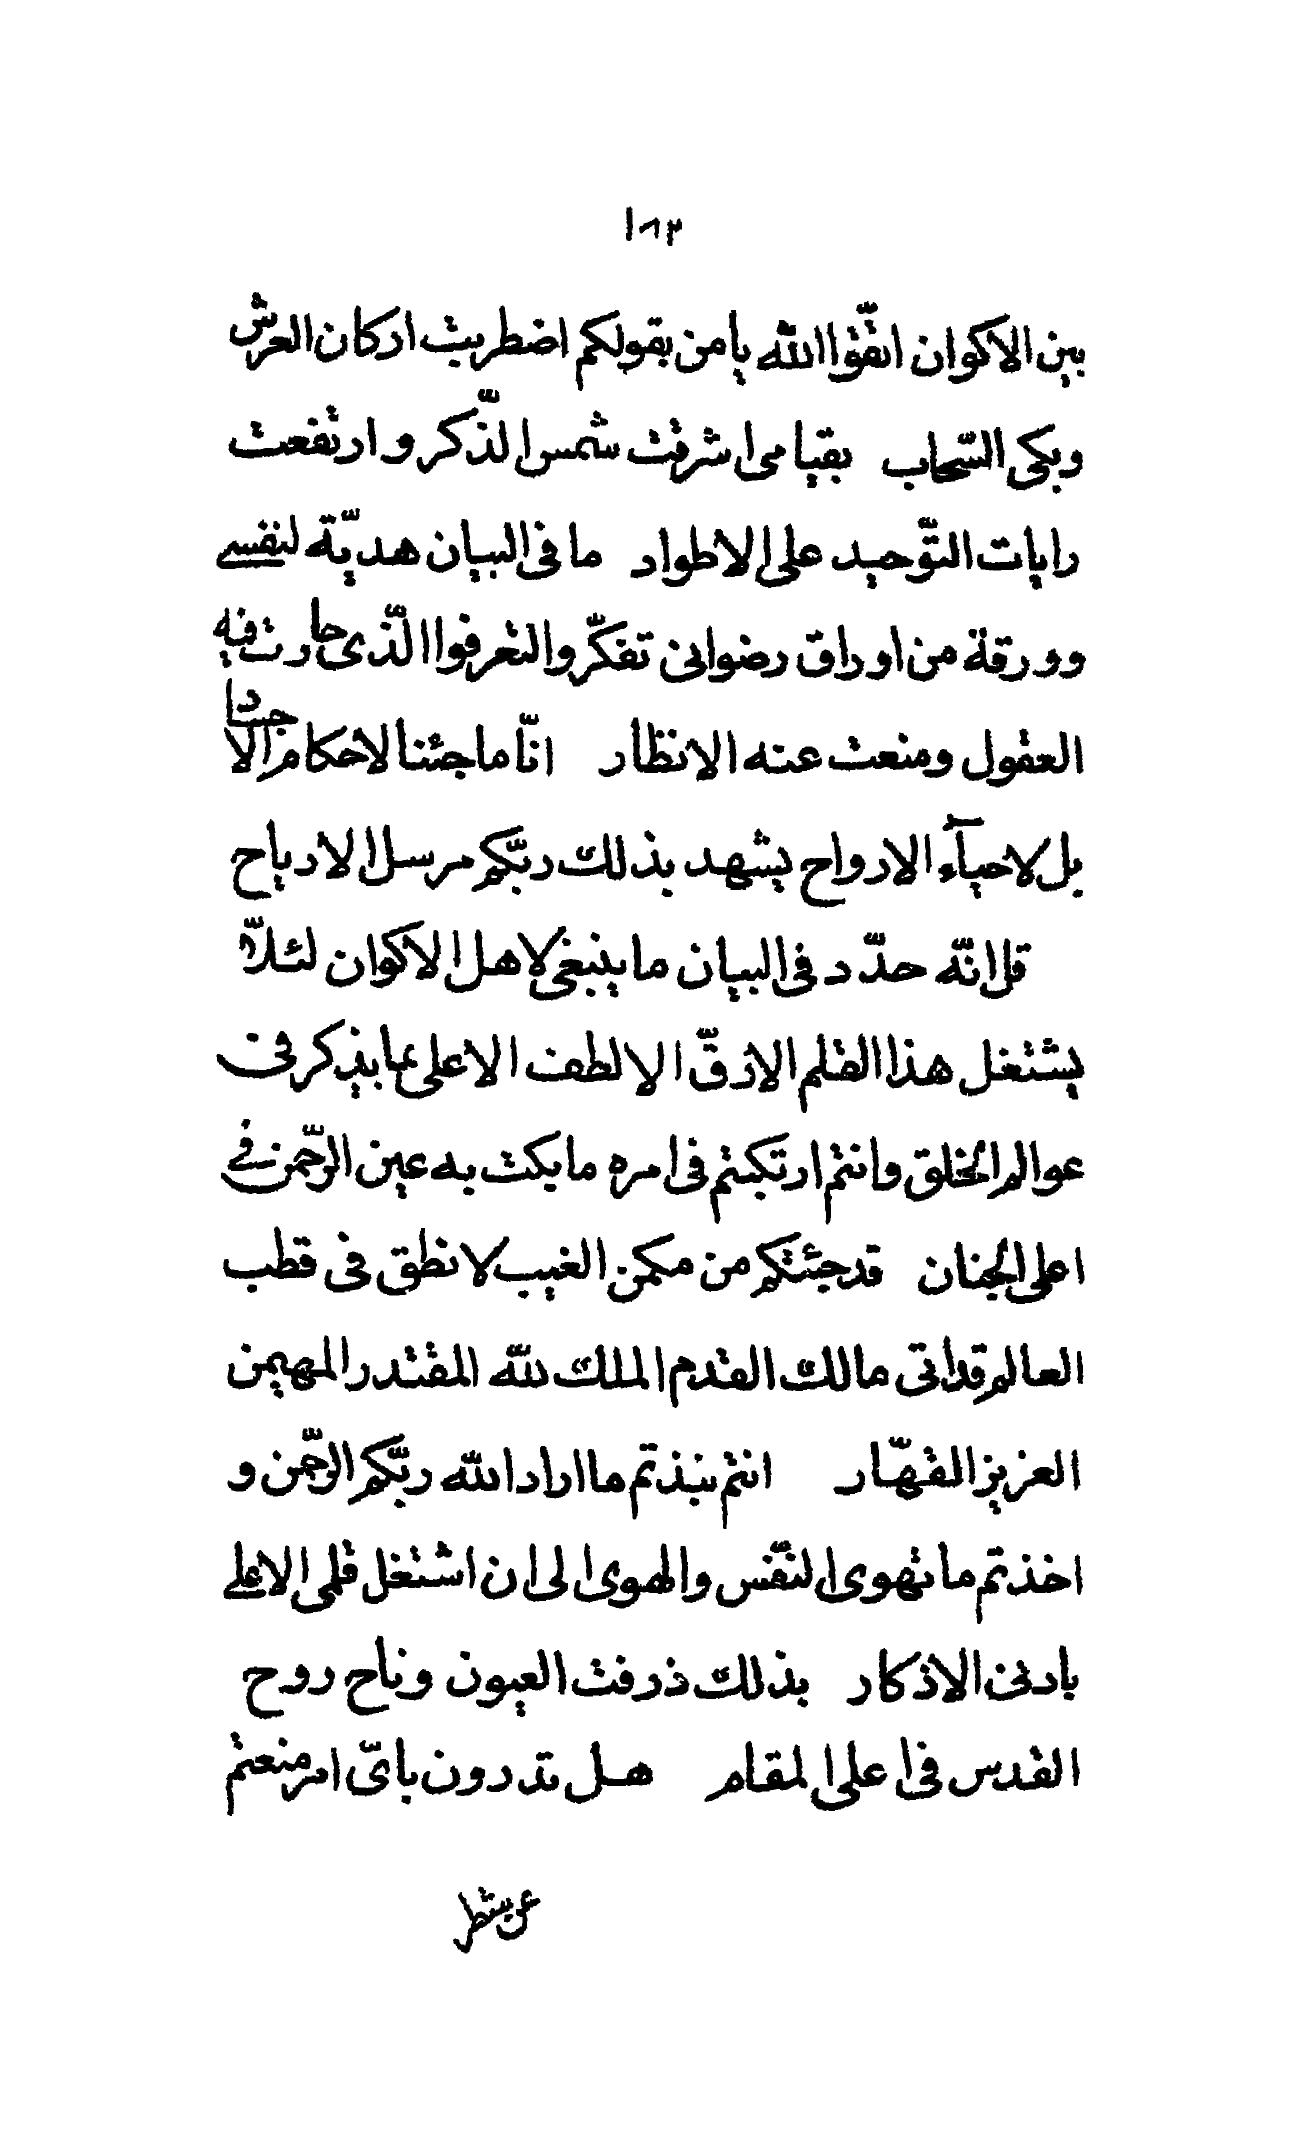 ١٨٣
بين الاكوان اتّقوا الله يا من بقولكم اضطربت اركان العرش
وبكى السّحاب بقيامى اشرقت شمس الذّكر و ارتفعت
رايات التّوحيد على الاطواد ما فى البيان هديّة لنفسى
و ورقة من اوراق رضوانى تفكّروا لتعرفوا الّذى حارت فيه
العقول و منعت عنه الانظار انّا ما جئنا لاحكام الاجساد
بل لاحيآء الارواح يشهد بذلك ربّكم مرسل الارياح
قل انّه حدّد فى البيان ما ينبغى لاهل الاكوان لئلّا
يشتغل هذا القلم الارقّ الالطف الاعلى بما يذكر فى
عوالم الخلق وانتم ارتكبتم فى امره ما بكت به عين الرّحمن فى
اعلى الجنان قد جئتكم من مكمن الغيب لانطق فى قطب
العالم قد اتى مالك القدم الملك لله المقتدر المهيمن
العزيز القهّار انتم نبذتم ما اراد الله ربّكم الرّحمن و
اخذتم ما تهوى النّفس والهوى الى ان اشتغل قلمى الاعلى
بادنى الاذكار بذلك ذرفت العيون وناح روح
القدس فى اعلى المقام هل تدرون باىّ امر منعتم
عن شطر